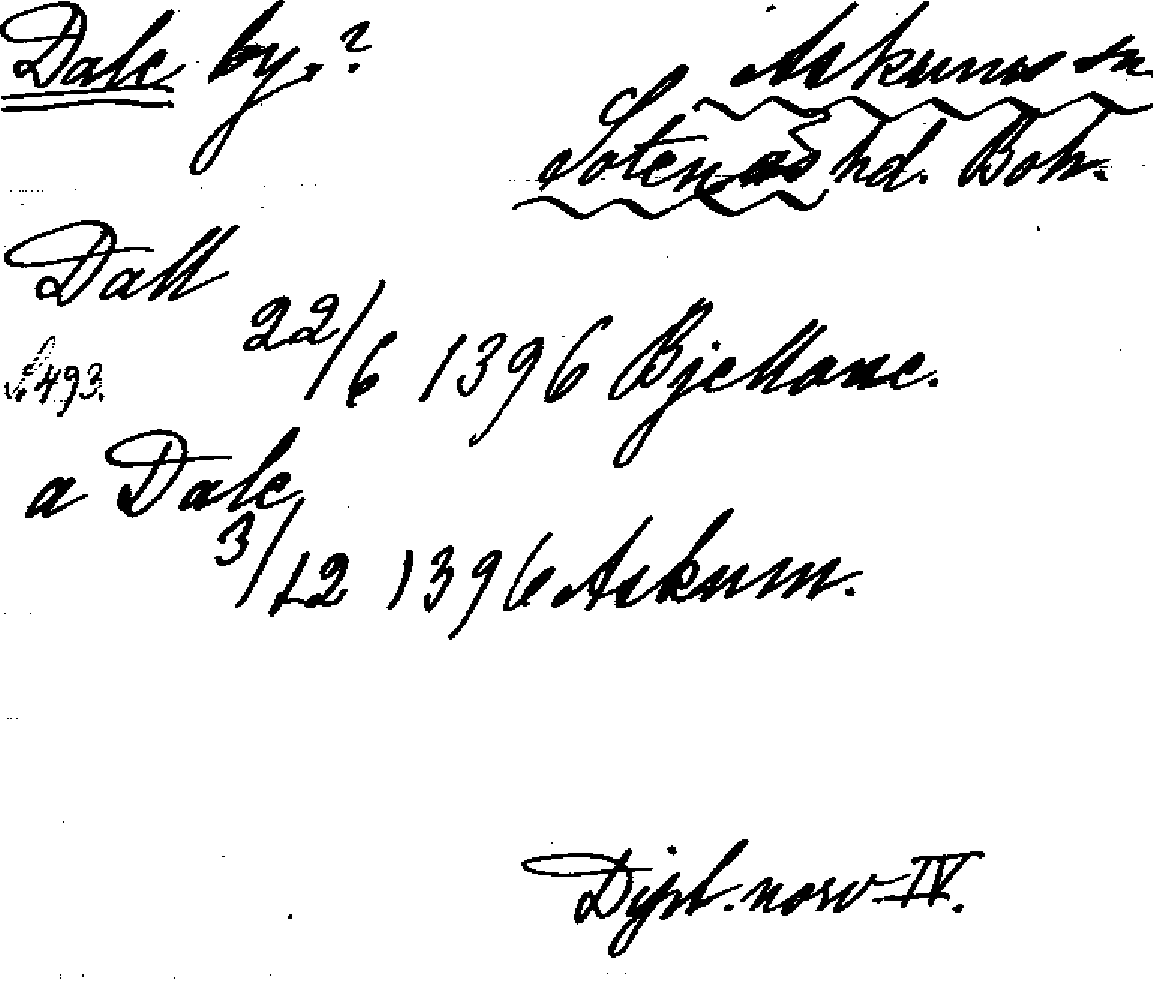 Dale by.? Askums sn
Sotenäs hd. Boh.
Dall
22/6 1396 Bjellane.
s. 493.
a Dale
3/12 1396 Askum.
Dipl. norv IV.